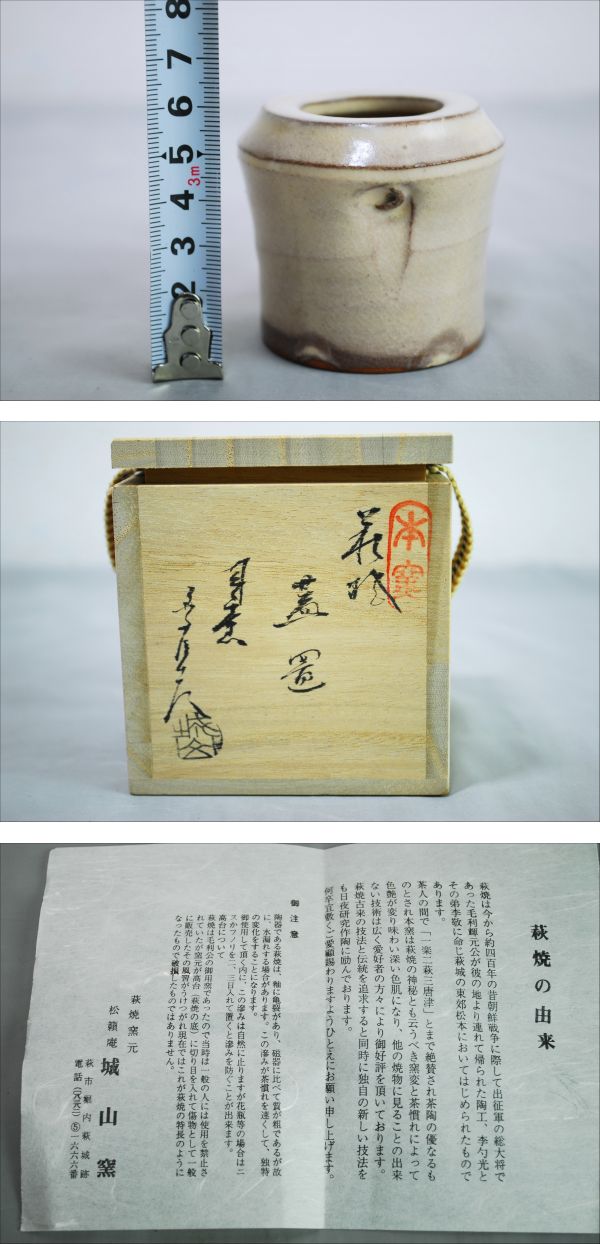 8
7
6
5
3m
4
3
2
本窯
萩焼
蓋置
萩焼の由来
萩焼は今から約四百年の昔朝鮮戦争に際して出征軍の総大将で
あった毛利輝元公が彼の地より連れて帰られた陶工、李勺光と
その弟李敬に命じ萩城の東郊松本においてはじめられたもので
あります。
茶人の間で「一楽二萩三唐津」とまで絶賛され茶陶の優なるも
のとされ本窯は萩焼の神秘とも云うべき窯変と茶慣れによって
色艶が変り味わい深い色肌になり、他の焼物に見ることの出来
ない技術は広く愛好者の方々により御好評を頂いております。
萩焼古来の技法と伝統を追求すると同時に独自の新しい技法を
も日夜研究作陶に励んでおります。
何卒宜敷くご愛顧賜わりますようひとえにお願い申し上げます。
御注意
陶器である萩焼は、釉に亀裂があり、磁器に比べて質が粗であるが故
に、水漏れする場合があります。この滲みが茶慣れを速くして、独特
の変化をすることになります。
御使用して頂く内に、この滲みは自然に止りますが花瓶等の場合はニ
スかフノリを二、三日入れて置くと滲みを防ぐことが出来ます。
高台について
萩焼は毛利公の御用窯であったので当時は一般の人には使用を禁止さ
れていたが窯元が高台(萩焼の底)に切り目を入れて傷物として一般
に販売したその風習がうけつがれ現在ではこれが萩焼の特長のように
なったもので破損したものではありません。
萩焼窯元
松韻庵 城山窯
萩市堀内萩城跡
電話(〇八三八二)⑤一六六六番